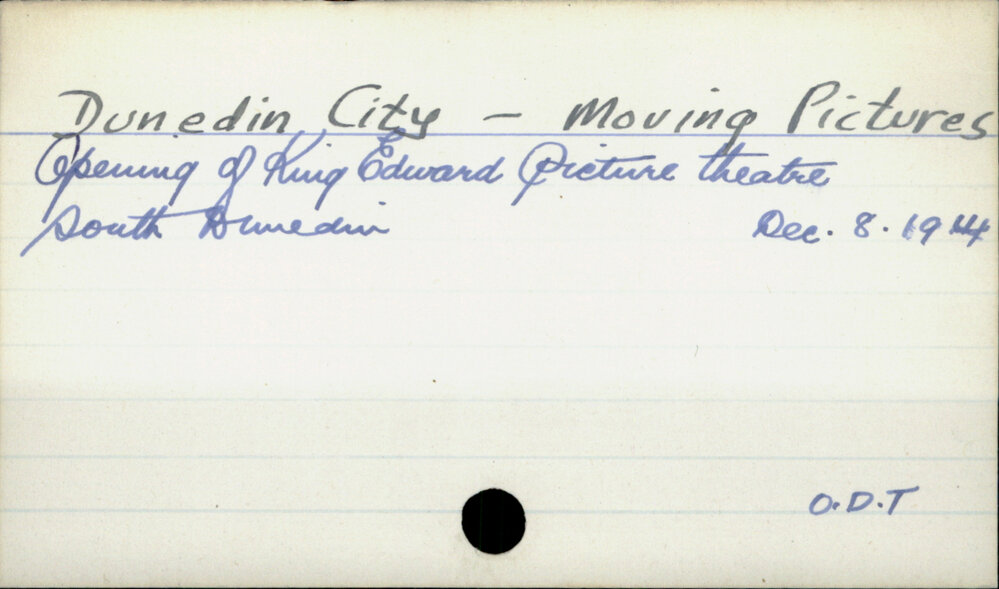 Dunedin City - Moving Pictures
Opening of King Edward Picture theatre
South Dunedin Dec. 8. 1914
O.D.T